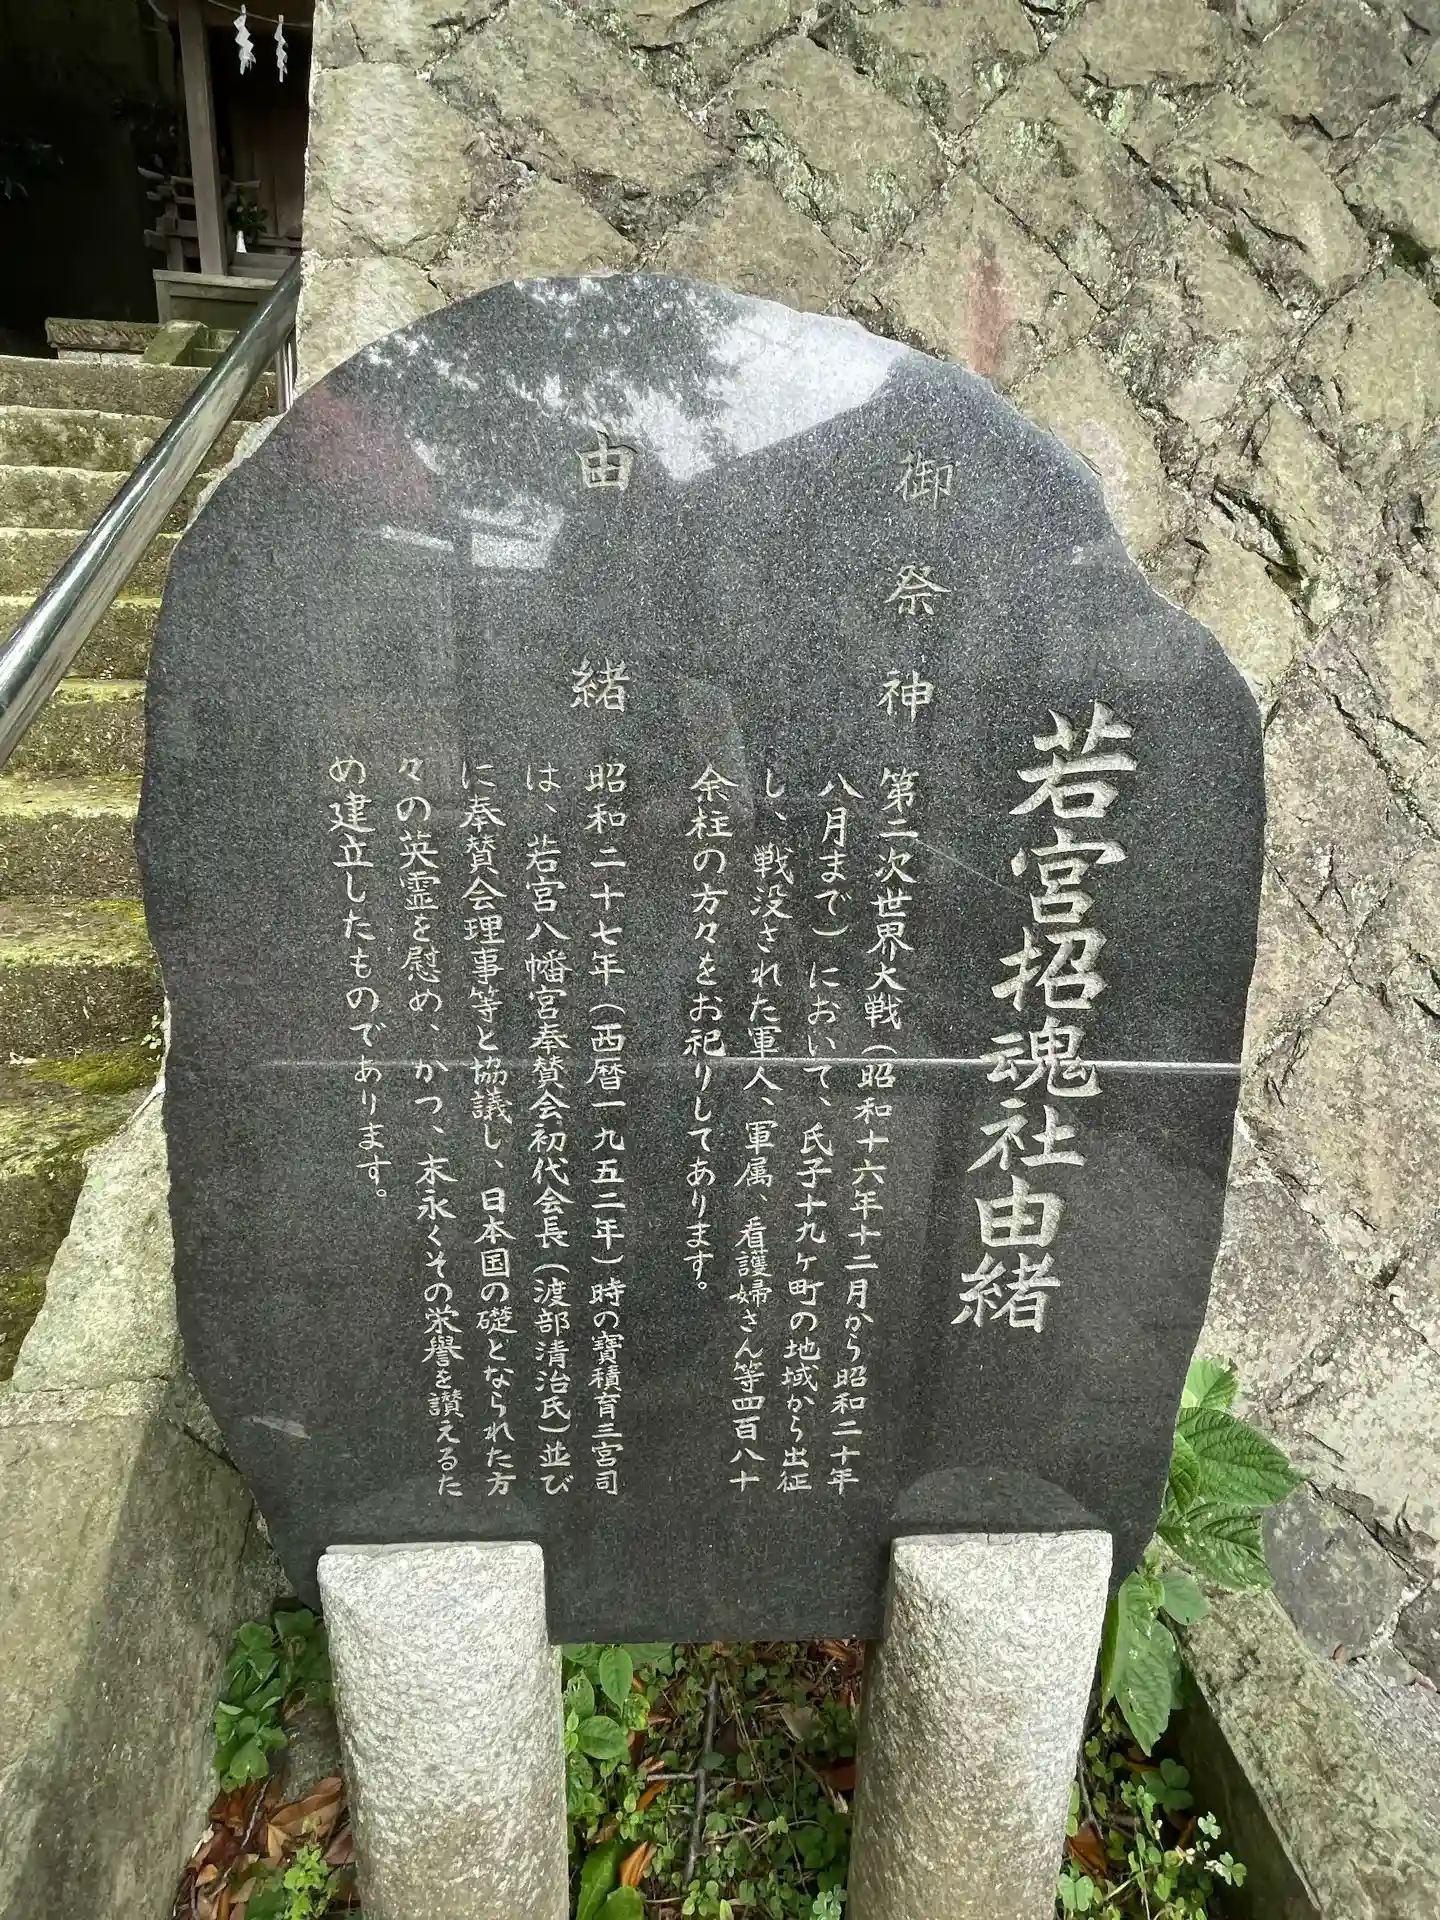 若宮招魂社由緒
御祭神
第二次世界大戦（昭和十六年十二月から昭和二十年
八月まで）において、氏子十九ヶ町の地域から出征
し、戦没された軍人、軍属、看護婦さん等四百八十
余柱の方々をお祀りしてあります。
由緒
昭和二十七年（西暦一九五二年）時の寶積育三宮司
は、若宮八幡宮奉賛会初代会長（渡部清治氏）並び
に奉賛会理事等と協議し、日本国の礎となられた方
々の英霊を慰め、かつ、末永くその栄誉を讃えるた
め建立したものであります。